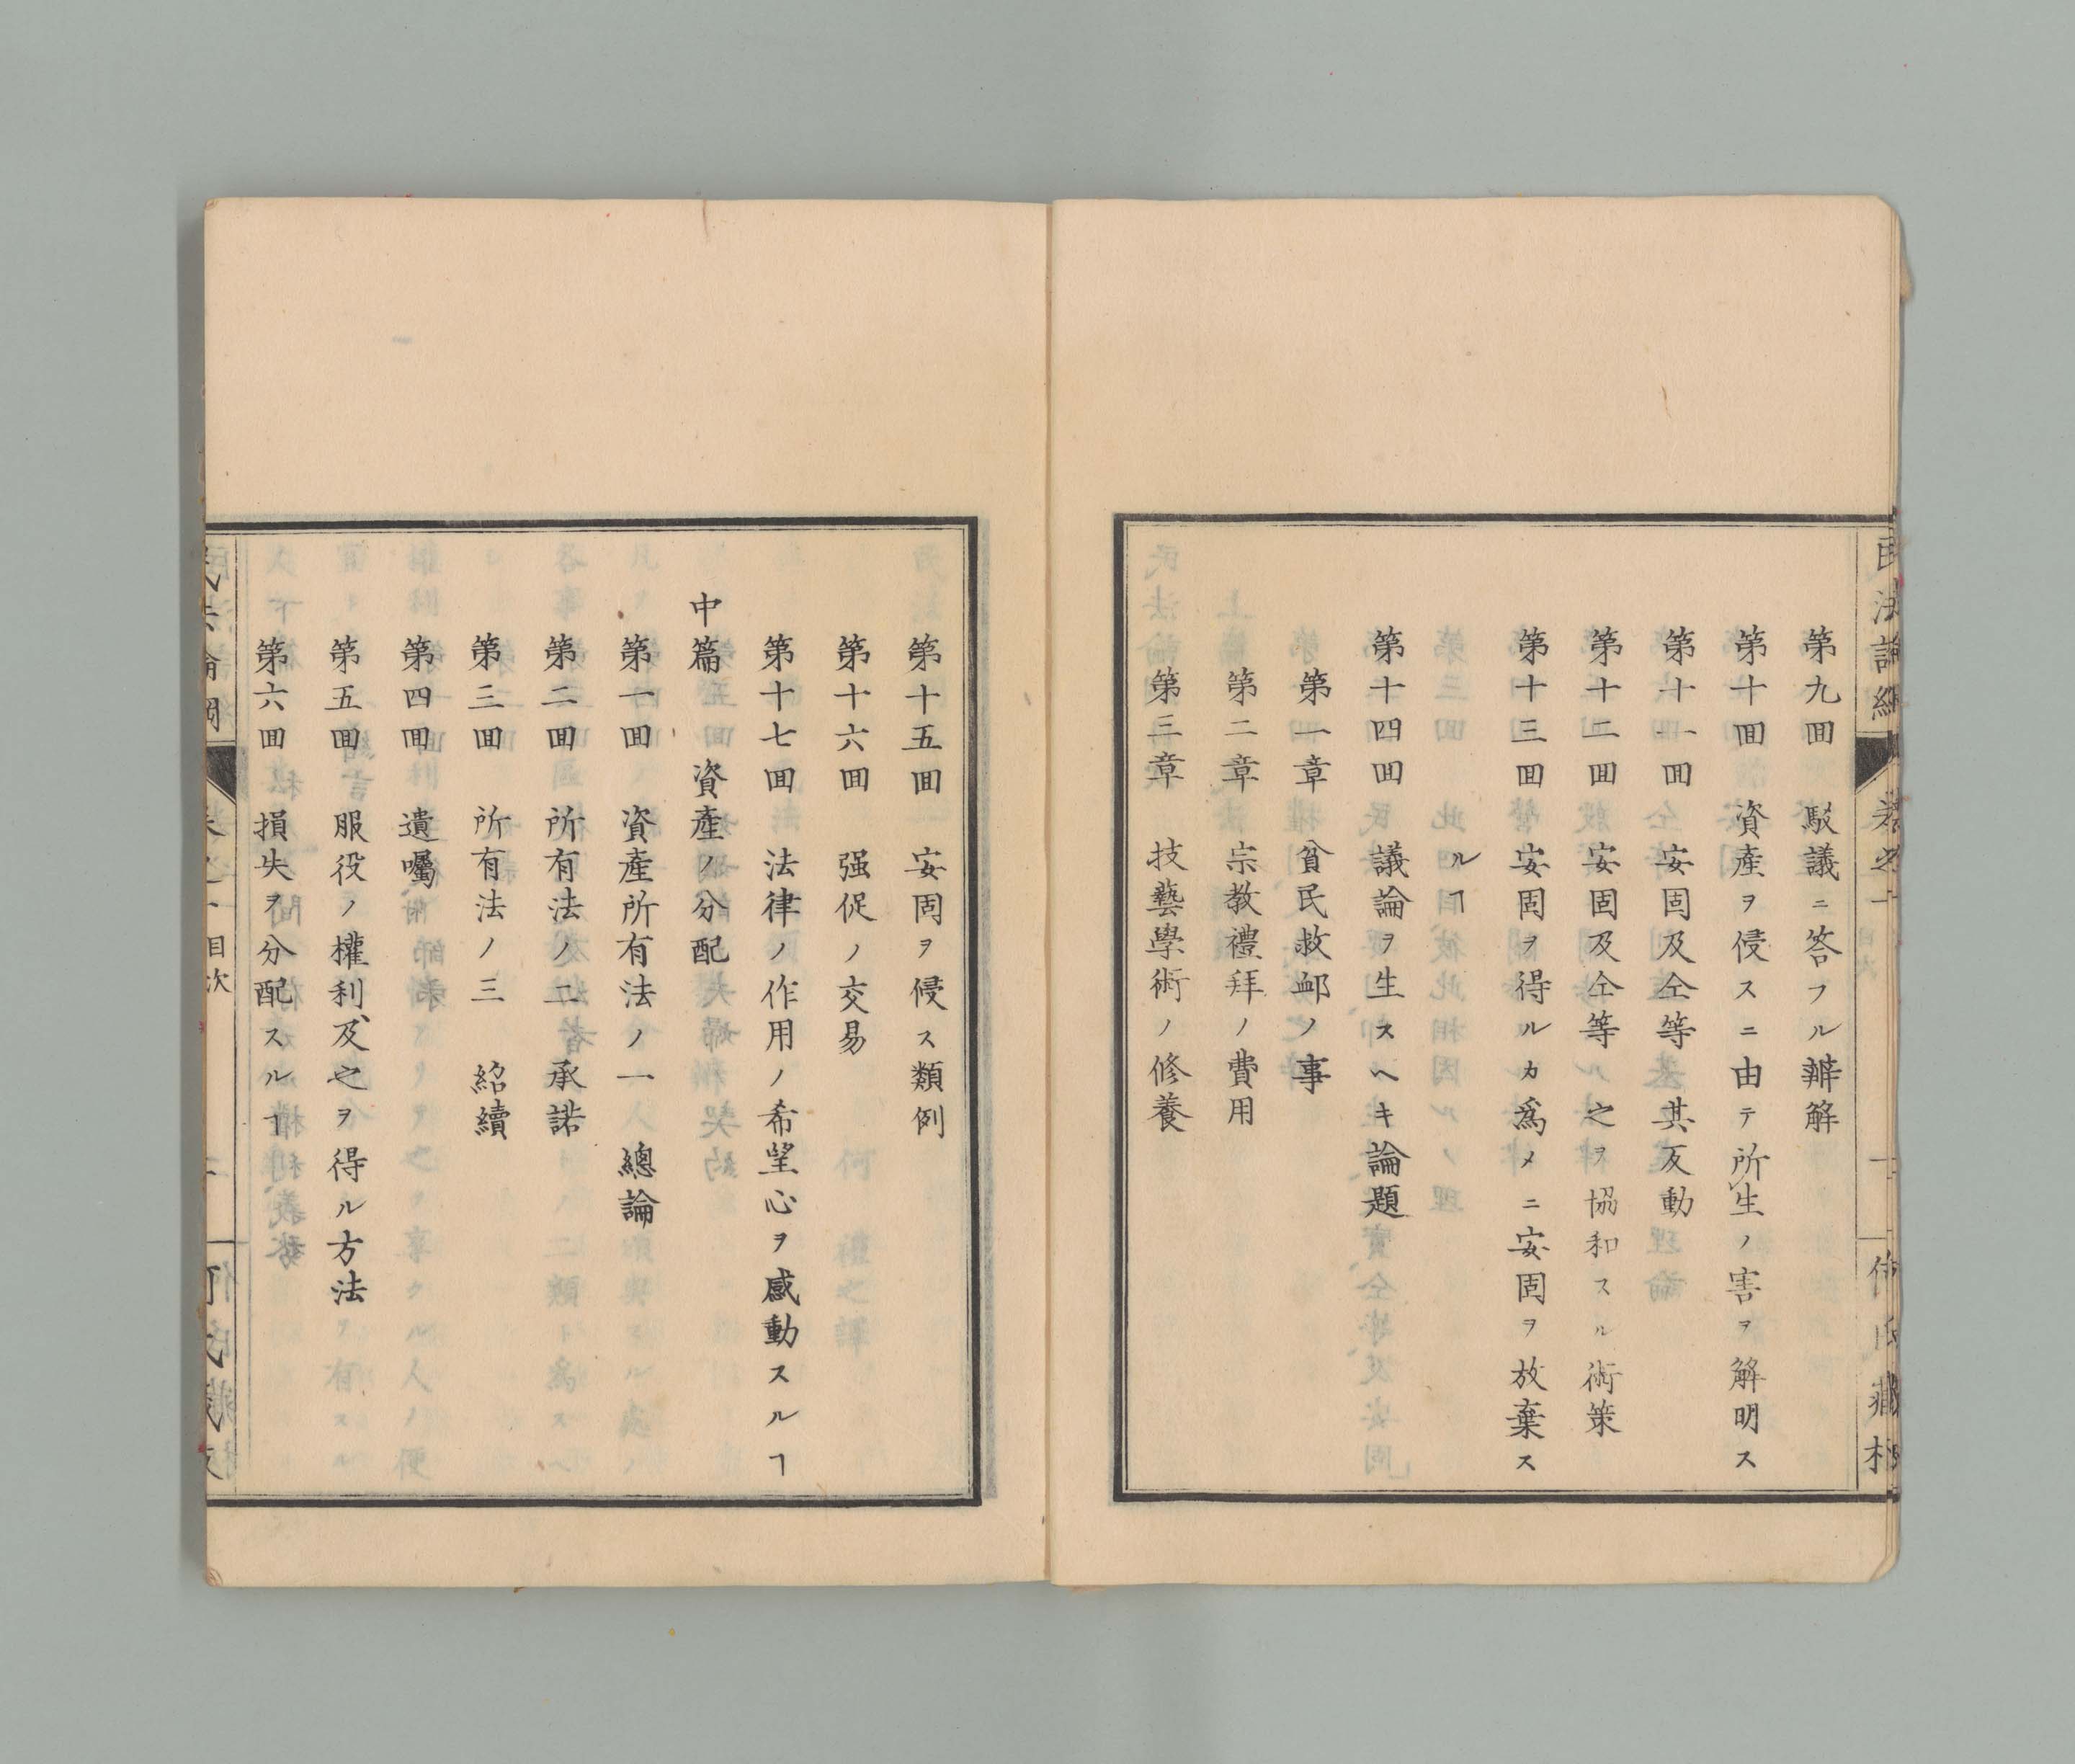 民法論綱
卷之一
目次
第九囬　駁議ニ答フル辨解
第十囬　資產ヲ侵スニ由テ所生ノ害ヲ解明ス
第十一囬　安固及仝等其反動
第十二囬　安固及仝等之ヲ協和スル術策
第十三囬　安固ヲ得ルカ爲メニ安固ヲ放棄ス
ルヿ
第十四囬　議論ヲ生スヘキ論題
第一章　貧民救邺ノ事
第二章　宗教禮拜ノ費用
第三章　技藝學術ノ修養
第十五囬　安固ヲ侵ス類例
第十六囬　强促ノ交易
第十七囬　法律ノ作用ノ希望心ヲ感動スルヿ
中篇　資產ノ分配
第一囬　資產所有法ノ一　總論
第二囬　所有法ノ二　承諾
第三囬　所有法ノ三　紹續
第四囬　遺囑
第五囬　服役ノ權利及之ヲ得ル方法
第六囬　損失ヲ分配スルヿ